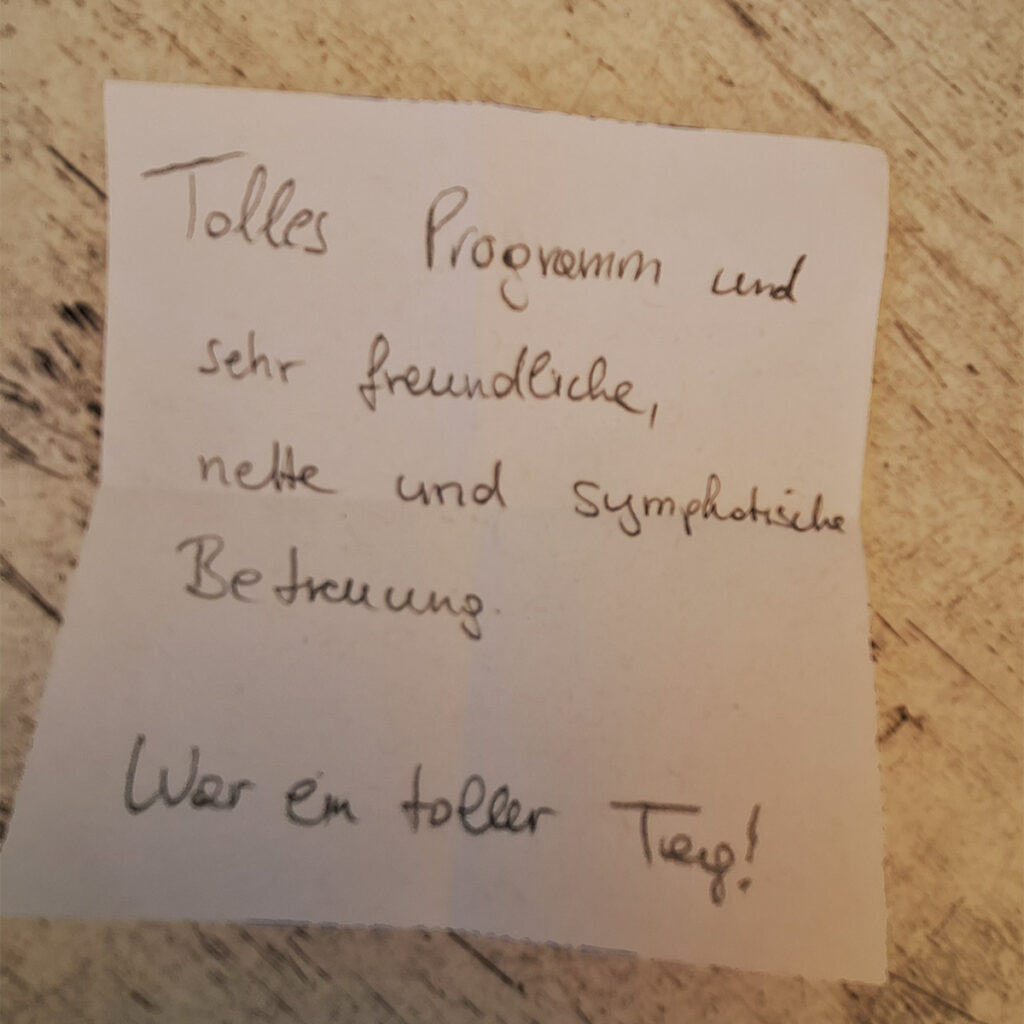 Tolles Programm und
sehr freundliche,
nette und symphatische
Betreuung.
War ein toller Tag!